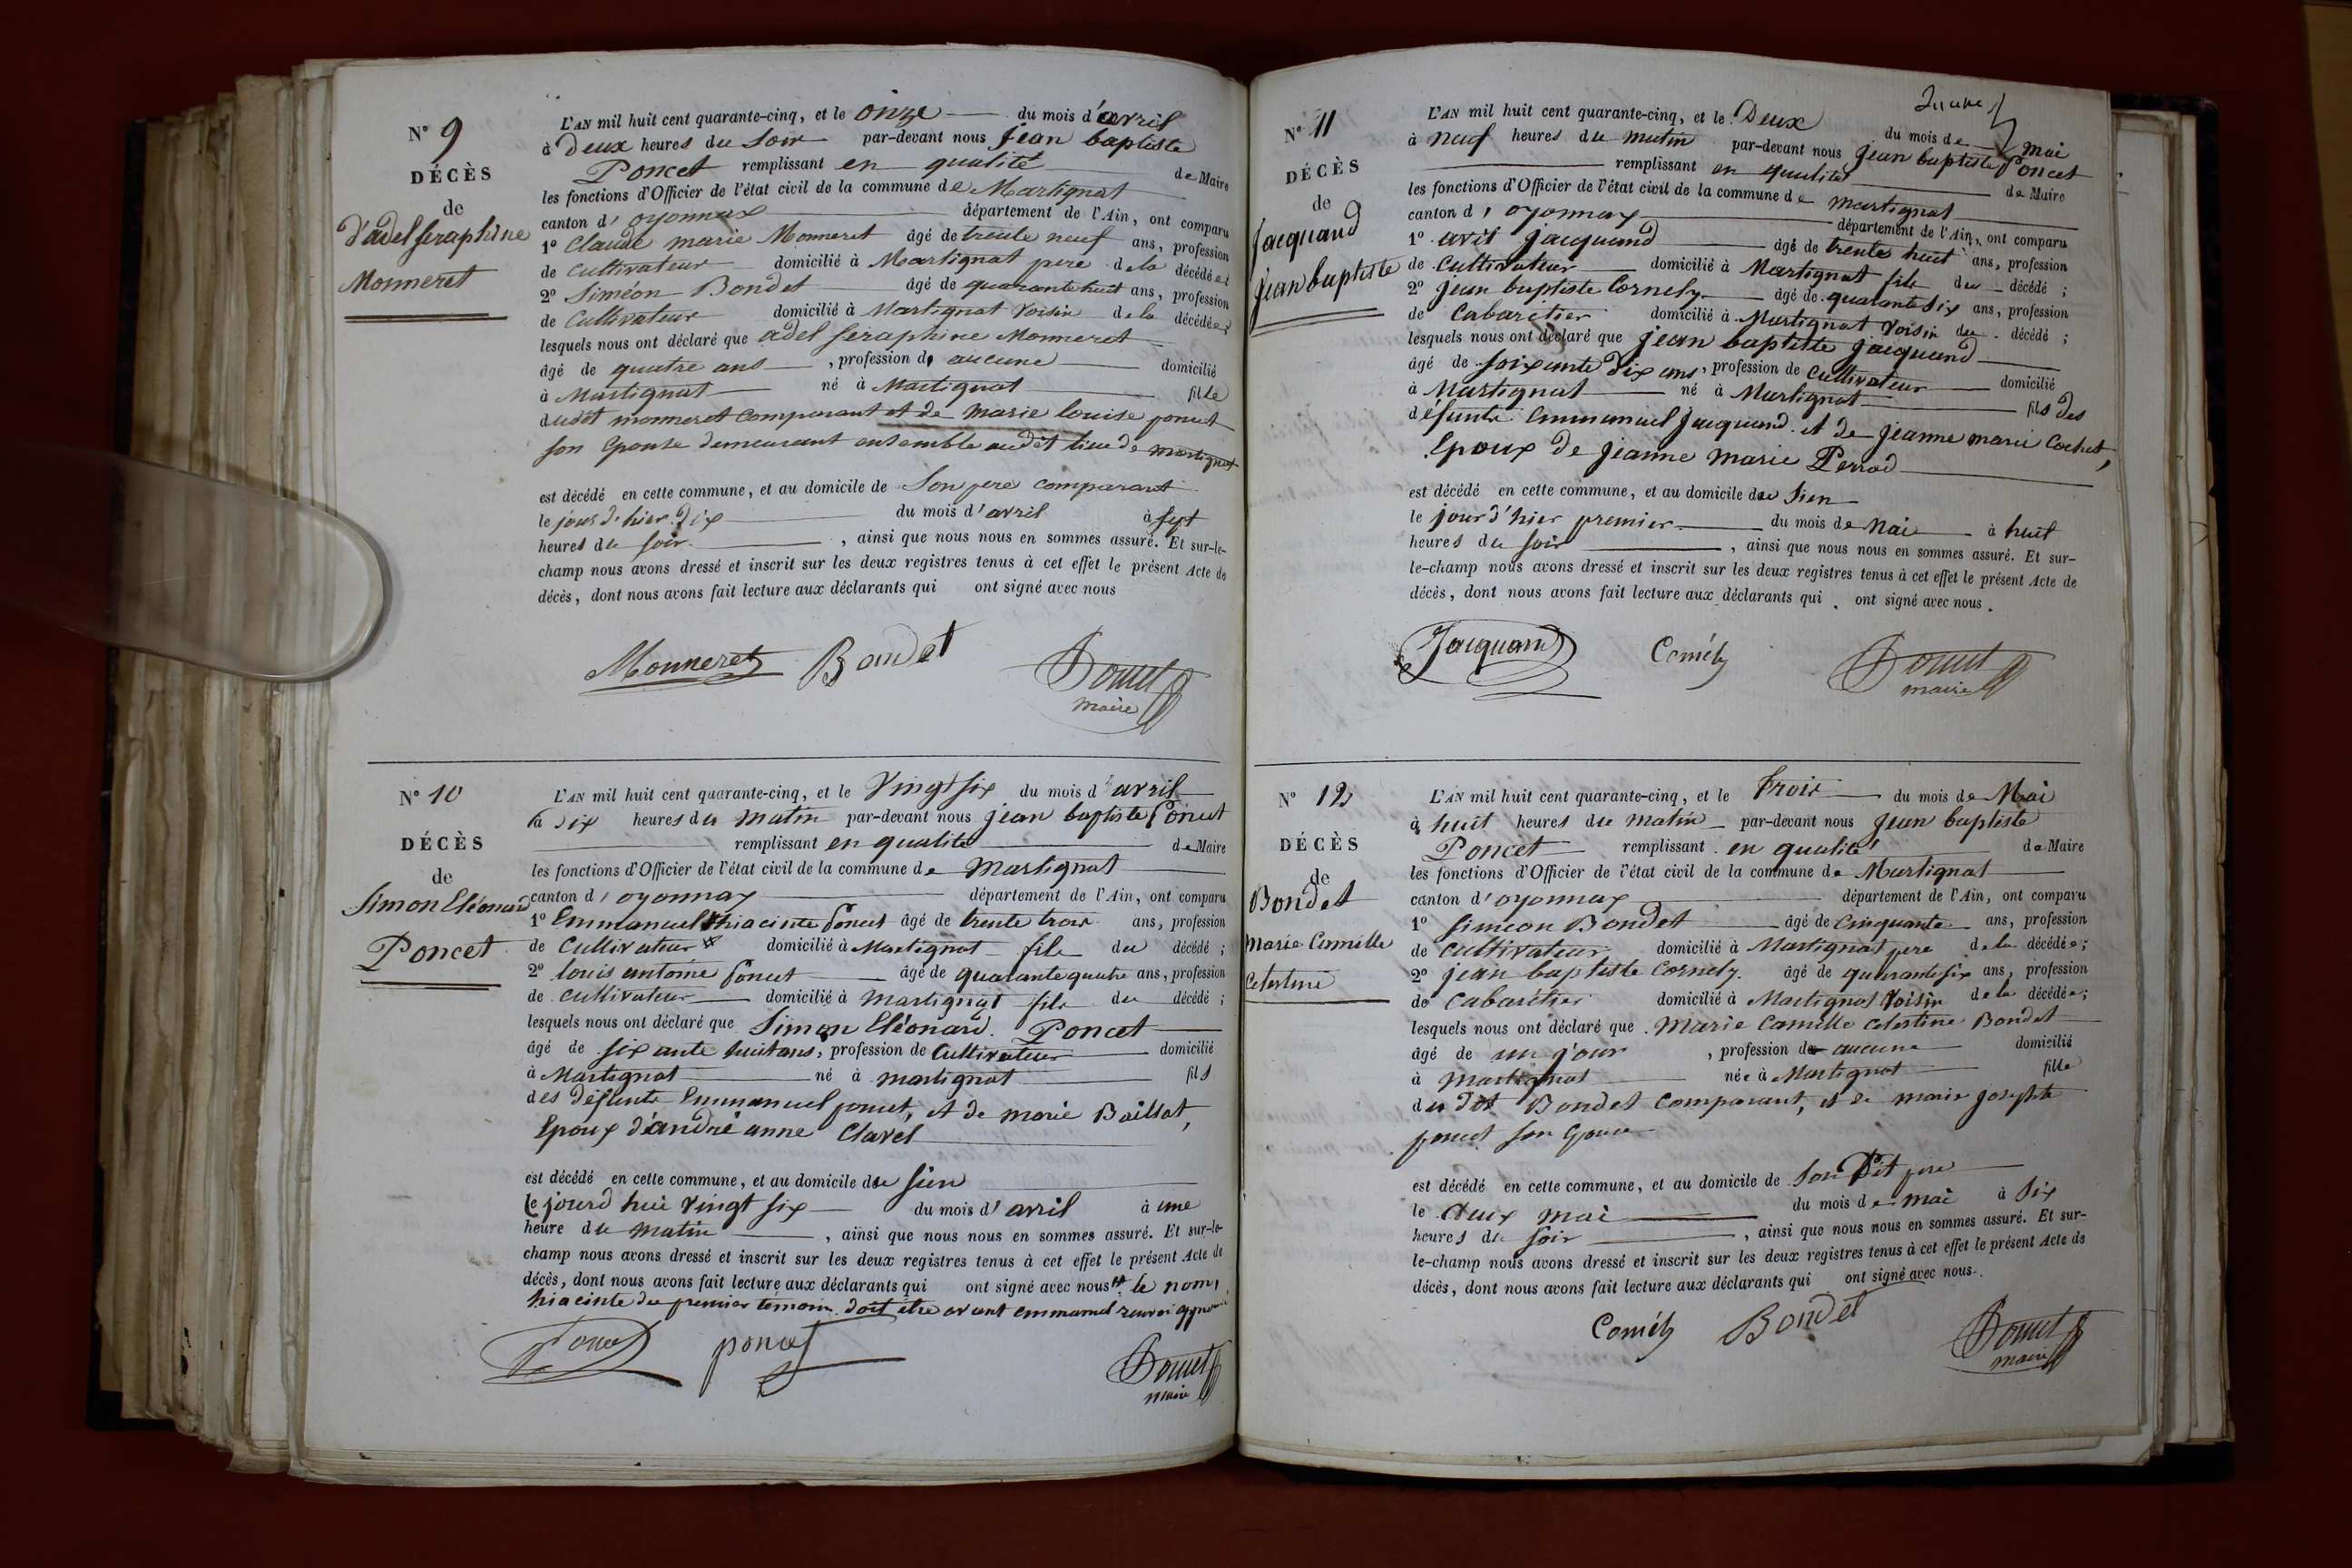 N° 9
DÉCÈS
de
d'adel seraphine
Monneret
L'AN mil huit cent quarante-cinq, et le onze du mois d'avril
à deux heures du soir par-devant nous jean baptiste
Poncet remplissant en qualité de Maire
les fonctions d'Officier de l'état civil de la commune de Martignat
canton d'oyonnax département de l'Ain, ont comparu
1° Claude marie Monneret âgé de trente neuf ans, profession
de cultivateur domicilié à Martignat pere de la décédée
2° Siméon Bondet âgé de quarante huit ans, profession
de cultivateur domicilié à Martignat voisin de la décédée
lesquels nous ont déclaré que adel seraphine Monneret
âgé de quatre ans, profession de aucune domicilié
à Martignat né à Martignat fille
dudit monneret comparant et de marie louise poncet
son epouse demeurant ensemble audit lieu de martignat
est décédé en cette commune, et au domicile de son pere comparant
le jour d'hier dix du mois d'avril à sept
heures du soir, ainsi que nous nous en sommes assuré. Et sur-le-
champ nous avons dressé et inscrit sur les deux registres tenus à cet effet le présent Acte de
décès, dont nous avons fait lecture aux déclarants qui ont signé avec nous
Monneret Bondet Poncet
maire
N° 10
DÉCÈS
de
Simon Eléonard
Poncet
L'AN mil huit cent quarante-cinq, et le vingt six du mois d'avril
à six heures du matin par-devant nous jean baptiste Poncet
remplissant en qualité de Maire
les fonctions d'Officier de l'état civil de la commune de Martignat
canton d'oyonnax département de l'Ain, ont comparu
1° Emmanuel hiacinte Poncet âgé de trente trois ans, profession
de cultivateur domicilié à Martignat fils du décédé ;
2° louis antoine Poncet âgé de quarante quatre ans, profession
de cultivateur domicilié à Martignat fils du décédé ;
lesquels nous ont déclaré que Simon Eléonard Poncet
âgé de sixante huit ans, profession de cultivateur domicilié
à Martignat né à martignat fils
des défunts Emmanuel poncet, et de marie Baillat,
Epoux d'andré anne Clavel
est décédé en cette commune, et au domicile du sien
le jourd hui vingt six du mois d'avril à une
heure du matin, ainsi que nous nous en sommes assuré. Et sur-le-
champ nous avons dressé et inscrit sur les deux registres tenus à cet effet le présent Acte de
décès, dont nous avons fait lecture aux déclarants qui ont signé avec nous le nom
hiacinte du premier témoin doit etre avant emmanuel renvoi
Poncet poncet Poncet
maire
N° 11
DÉCÈS
de
Jacquand
jean baptiste
L'AN mil huit cent quarante-cinq, et le Deux du mois de mai
à neuf heures du matin par-devant nous jean baptiste Poncet
remplissant en qualité de Maire
les fonctions d'Officier de l'état civil de la commune de martignat
canton d'oyonnax département de l'Ain, ont comparu
1° avit jacquand âgé de trente huit ans, profession
de cultivateur domicilié à Martignat fils du décédé ;
2° jean baptiste Cornely âgé de quarante six ans, profession
de Cabarétier domicilié à Martignat voisin du décédé ;
lesquels nous ont déclaré que jean baptiste jacquand
âgé de soixante dix ans, profession de cultivateur domicilié
à Martignat né à Martignat fils des
défunts Emmanuel jacquand et de jeanne marie Cochet,
Epoux de jeanne marie Perrod
est décédé en cette commune, et au domicile du sien
le jour d'hier premier du mois de Mai à huit
heures du soir, ainsi que nous nous en sommes assuré. Et sur-
le-champ nous avons dressé et inscrit sur les deux registres tenus à cet effet le présent Acte de
décès, dont nous avons fait lecture aux déclarants qui ont signé avec nous.
Jacquand Cornély Poncet
maire
N° 12
DÉCÈS
de
Bondet
Marie Camille
Celestine
L'AN mil huit cent quarante-cinq, et le trois du mois de Mai
à huit heures du matin par-devant nous jean baptiste
Poncet remplissant en qualité de Maire
les fonctions d'Officier de l'état civil de la commune de Martignat
canton d'oyonnax département de l'Ain, ont comparu
1° Simeon Bondet âgé de cinquante ans, profession
de cultivateur domicilié à Martignat pere de la décédée ;
2° jean baptiste cornely âgé de quarante six ans, profession
de cabarétier domicilié à Martignat voisin de la décédée ;
lesquels nous ont déclaré que Marie Camille celestine Bondet
âgé de un jour, profession de aucune domicilié
à Martignat née à Martignat fille
du dit Bondet comparant, et de marie josephte
poncet son epouse
est décédé en cette commune, et au domicile de son dit pere
le deux mai du mois de mai à six
heures du soir, ainsi que nous nous en sommes assuré. Et sur-
le-champ nous avons dressé et inscrit sur les deux registres tenus à cet effet le présent Acte de
décès, dont nous avons fait lecture aux déclarants qui ont signé avec nous.
Cornély Bondet Poncet
maire